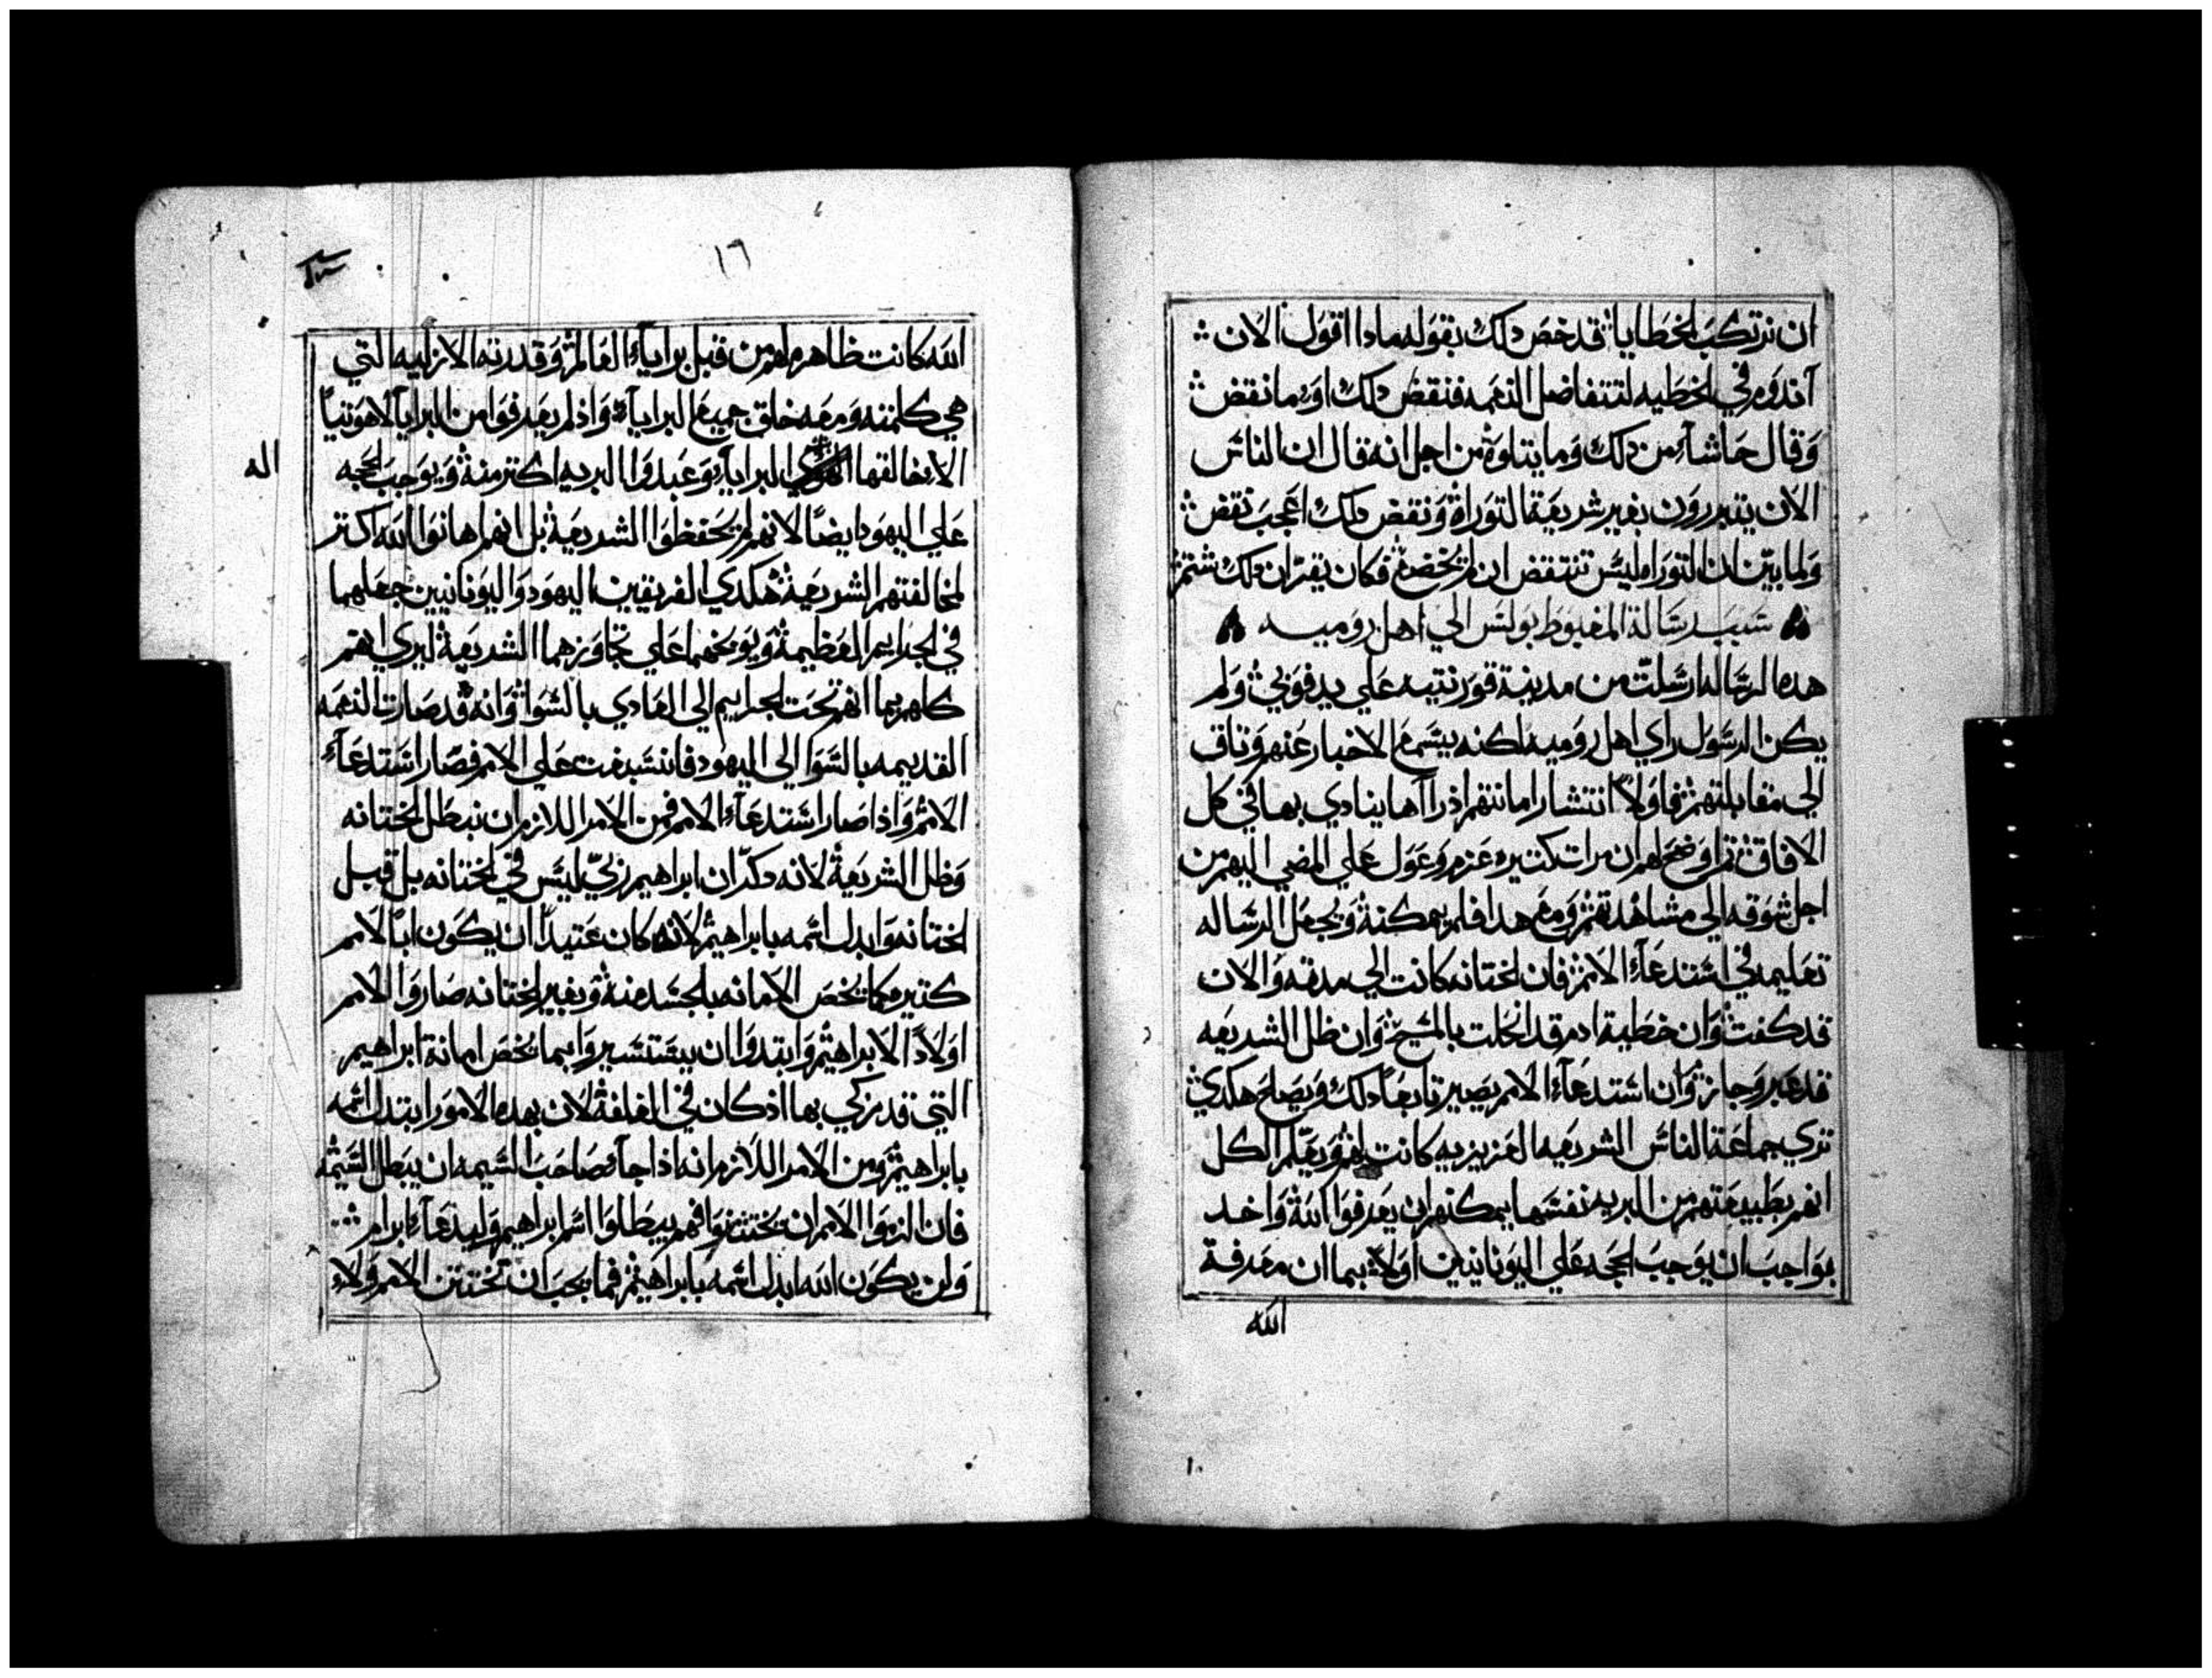 ان نرتكب الخطايا قد خص دلك بقوله مادا اقول الان
آندوم في الخطيه لتتفاضل النعمه فنقض دلك اوما نقض
وقال حاشآ من دلك وما يتلوه من اجل انه قال ان الناس
الان يتبررون بغير شريعة التوراة ونقض دلك اعجب نقض
ولما بين ان التوراه ليس تنتقض ان لم تخضع فكان يقر ان دلك شتم
سبب رسالة المغبوط بولس الي اهل روميه
هده الرساله ارسلت من مدينة قورنتيه علي يد فوبي ولم
يكن الرسول راي اهل روميه لكنه يسمع الاخبار عنهم وتاق
الي مقابلتهم فاولا انتشار امانتهم اد رآها ينادي بها في كل
الافاق ثم اوضح لهم ان مرات كتيره عزم وعول علي المضي اليهم من
اجل شوقه الي مشاهدتهم ومع هدا فلم يمكنه ويجعل الرساله
تعليمه في استدعآء الامم فان الختانه كانت الي مدة والان
قد كفت وان خطية ادم قد انحلت بالمسيح وان ظل الشريعه
قد عبر وجاز وان استدعآء الامم يصير تابعا دلك ويصلح هكدي
تري جماعة الناس الشريعه الغريزيه كانت لهم ويعلم الكل
انهم بطبيعتهم من البريه نفسها يمكنهم ان يعرفوا الله واخد
بواجب ان يوجب الحجه علي اليونانيين اولا بما ان معرفة
الله
١٦
الله كانت ظاهره لهم من قبل برايآء العالم وقدرته الازليه التي
هي كلمته ومعه خلق جميع البرايآ واذ لم يعرفوا من البرايآ لاهوتيا
الا خالقها البرايآ وعبدوا البريه اكتر منه ويوجب الحجه
اله
علي اليهود ايضا لانهم لم يحفظوا الشريعة بل انهم اهانوا الله اكتر
لمخالفتهم الشريعة هكدي الفريقين اليهود واليونانيين جعلهما
في الجرايم العظيمة ويوبخهما علي تجاوزهما الشريعة ليري انهم
كلهم بما انهم تحت الجرايم الي الفادي بالسوا وانه قد صارت النعمه
القديمه بالسوا الي اليهود فانتسبت علي الامم فصار استدعآء
الامم واذا صار استدعآء الامم فمن الامر اللازم ان نبطل الختانه
وظل الشريعة لانه دكر ان ابراهيم زكي ليس في الختانه بل قبل
الختانه وابدل اسمه بابراهيم لانه كان عتيدا ان يكون ابا لامم
كتيره كما يخص الامانه بالجسد منه وبغير الختانه صاروا الامم
اولادا لابراهيم وابتدوا ان يستسيروا بما يخص امانة ابراهيم
التي قد زكي بها اذ كان في الغلفة لان بهده الامور ابتدل اسمه
بابراهيم ومن الامر اللازم انه اذا جآء صاحب السيمه ان يبطل السيمة
فان الزموا الامم ان يختتنوا فهم يبطلوا اسم ابراهيم وليدعآ ابرام
ولن يكون الله ابدل اسمه بابراهيم فما يجب ان تختتن الامم ولا